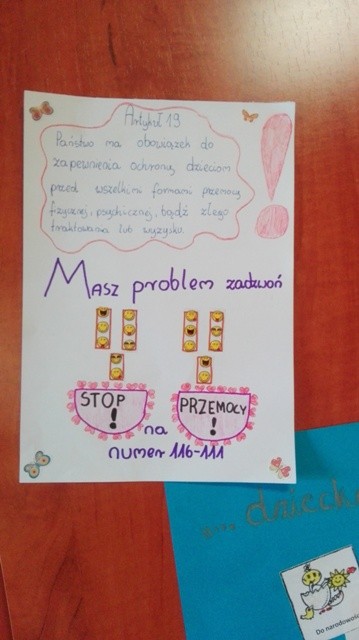 Artykuł 19
Państwo ma obowiązek do
zapewnienia ochrony dzieciom
przed wszelkimi formami przemocy
fizycznej, psychicznej, bądź złego
traktowania lub wyzysku.
Masz problem zadzwoń
STOP ! PRZEMOCY !
na
numer 116-111
dziecka
Do narodowości